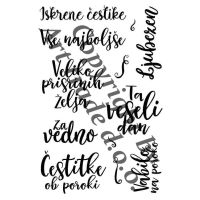 Iskrene čestitke
Vse najboljše
Veliko
prisrčnih
želja
Za
vedno
Čestitke
ob poroki
Ljubezen
Ta
veseli
dan
Vabilo
na poroko
Copyright